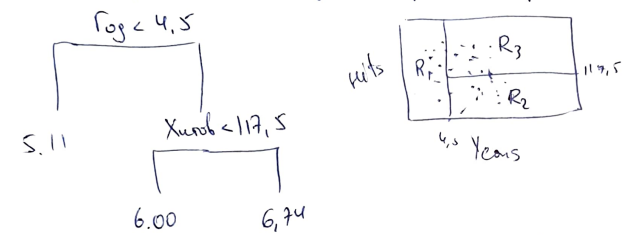 Год < 4,5
5.11
Хитов < 117,5
6.00
6,74
Hits
R1
R3
R2
117,5
4,5
Years